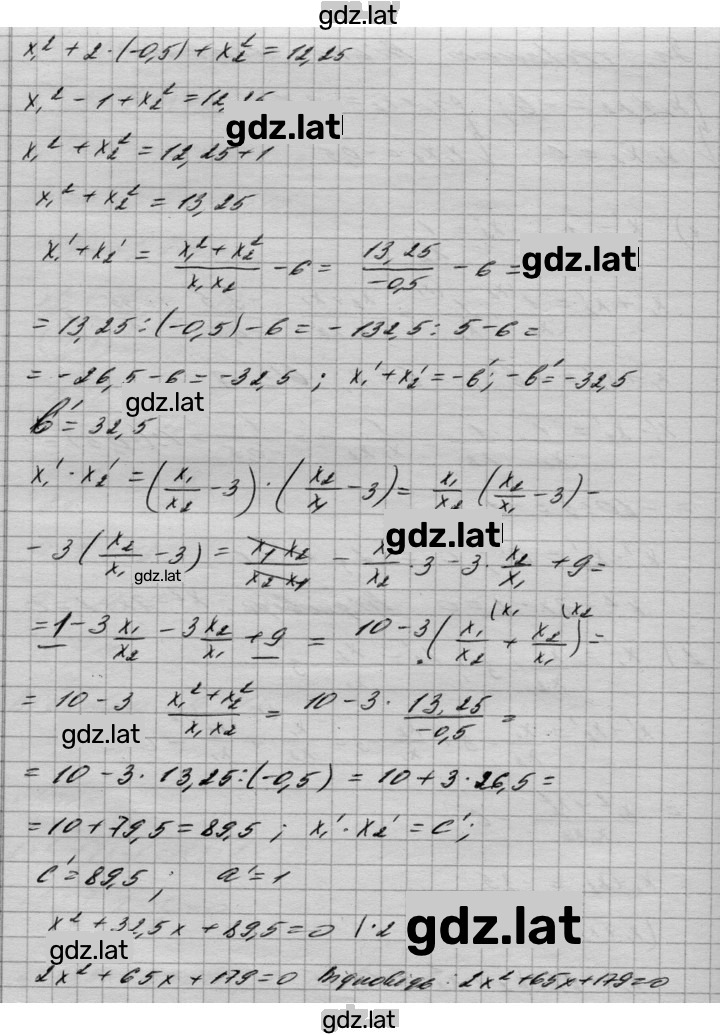 gdz.lat
x₁² + 2·(-0,5) + x₂² = 12,25
x₁² - 1 + x₂² = 12,25
gdz.lat
x₁² + x₂² = 12,25 + 1
x₁² + x₂² = 13,25
x₁' + x₂' = (x₁² + x₂²)/(x₁x₂) - 6 = 13,25/(-0,5) - 6 = gdz.lat
= 13,25 : (-0,5) - 6 = -132,5 : 5 - 6 =
= -26,5 - 6 = -32,5 ; x₁' + x₂' = -b'; -b' = -32,5
gdz.lat
b' = 32,5
x₁' · x₂' = (x₁/x₂ - 3) · (x₂/x₁ - 3) = x₁/x₂ (x₂/x₁ - 3) -
gdz.lat
- 3 (x₂/x₁ - 3) = x₁x₂/x₂x₁ - x₁/x₂ · 3 - 3 · x₂/x₁ + 9 =
gdz.lat
= 1 - 3 x₁/x₂ - 3 x₂/x₁ + 9 = 10 - 3 (x₁/x₂ (x₁ + x₂/x₁ (x₂) =
= 10 - 3 (x₁² + x₂²)/(x₁x₂) = 10 - 3 · 13,25/(-0,5) =
gdz.lat
= 10 - 3 · 13,25 : (-0,5) = 10 + 3 · 26,5 =
= 10 + 79,5 = 89,5 ; x₁' · x₂' = c' ;
c' = 89,5 ; a' = 1
x² + 32,5x + 89,5 = 0 | ·2
gdz.lat
gdz.lat
2x² + 65x + 179 = 0 Відповідь: 2x² + 65x + 179 = 0
gdz.lat